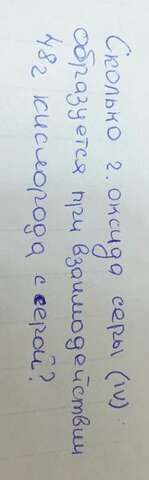 Сколько г. оксида серы (IV)
образуется при взаимодействии
48г кислорода с серой?